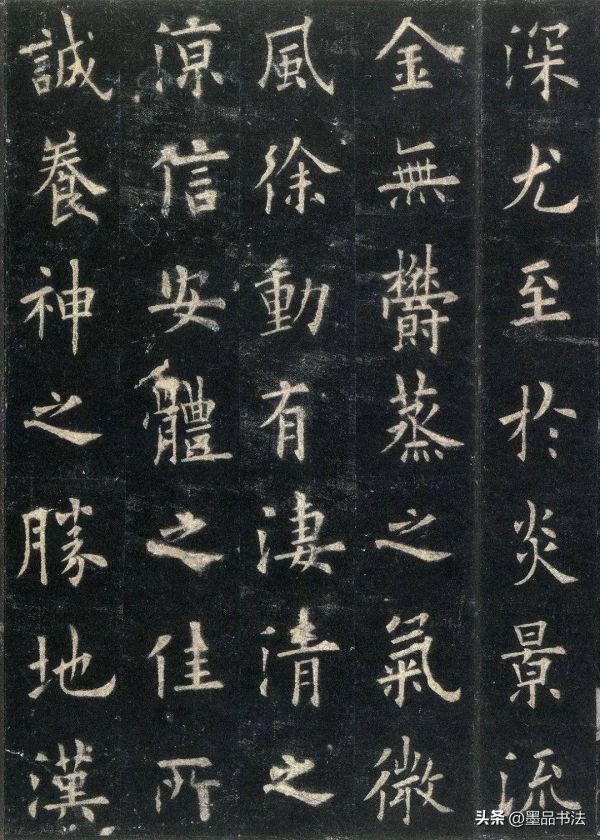 深尤至於炎景流
金無欝蒸之氣微
風徐動有淒清之
涼信安體之佳所
誠養神之勝地漢
头条@墨品书法